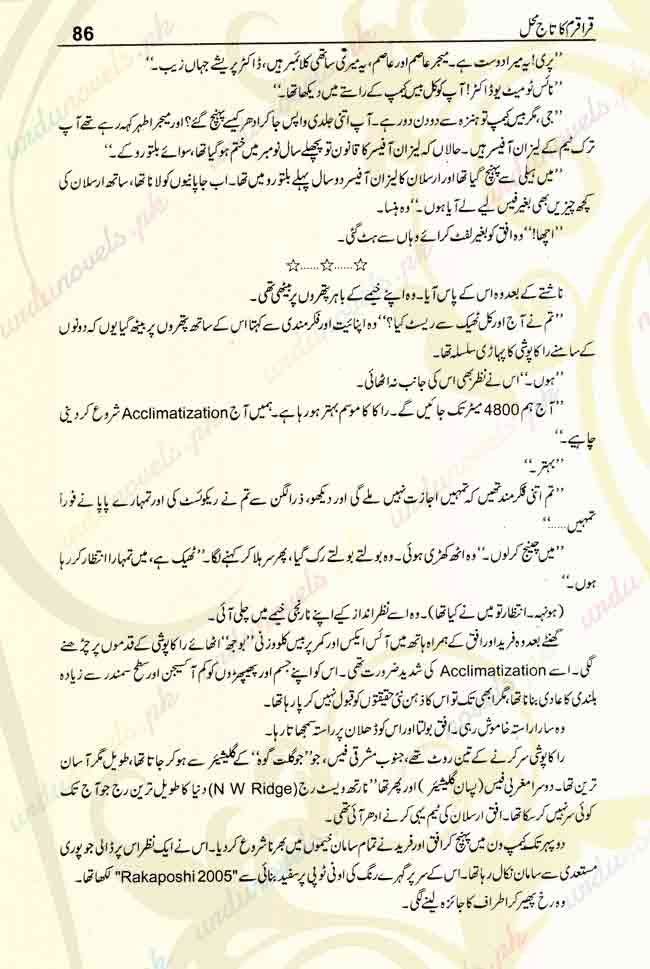 قراقرم کا تاج محل
86
’’پری! یہ میرا دوست ہے۔ میجر عاصم اور عاصم، یہ میری ساتھی کلائمبر ہیں، ڈاکٹر پریشے جہاں زیب۔‘‘
’’نائس ٹو میٹ یو ڈاکٹر! آپ کو کل بیس کیمپ کے راستے میں دیکھا تھا۔‘‘
’’جی، مگر بیس کیمپ تو ہنزہ سے دو دن دور ہے۔ آپ اتنی جلدی واپس جا کر ادھر کیسے پہنچ گئے؟ اور میجر اطہر کہہ رہے تھے آپ
ترک ٹیم کے لیزان آفیسر ہیں۔ حالاں کہ لیزان آفیسر کا قانون تو پچھلے سال نومبر میں ختم ہو گیا تھا، سوائے بلتورو کے۔‘‘
’’میں ہیلی سے پہنچ گیا تھا اور ارسلان کا لیزان آفیسر دو سال پہلے بلتورو میں تھا۔ اب جاپانیوں کو لانا تھا، ساتھ ارسلان کی
کچھ چیزیں بھی بغیر فیس لیے لے آیا ہوں۔‘‘ وہ ہنسا۔
’’اچھا!‘‘ وہ افق کو بغیر لفٹ کرائے وہاں سے ہٹ گئی۔
☆......☆......☆
ناشتے کے بعد وہ اس کے پاس آیا۔ وہ اپنے خیمے کے باہر پتھروں پر بیٹھی تھی۔
’’تم نے آج اور کل ٹھیک سے ریسٹ کیا؟‘‘ وہ اپنائیت اور فکر مندی سے کہتا اس کے ساتھ پتھروں پر بیٹھ گیا یوں کہ دونوں
کے سامنے راکاپوشی کا پہاڑی سلسلہ تھا۔
’’ہوں۔‘‘ اس نے نظر بھی اس کی جانب نہ اٹھائی۔
’’آج ہم 4800 میٹر تک جائیں گے۔ راکا کا موسم بہتر ہو رہا ہے۔ ہمیں آج Acclimatization شروع کر دینی
چاہیے۔‘‘
’’بہتر۔‘‘
’’تم اتنی فکر مند تھیں کہ تمہیں اجازت نہیں ملے گی اور دیکھو، ذرا لگن سے تم نے ریکوئسٹ کی اور تمہارے پاپا نے فوراً
تمہیں.....‘‘
’’میں چینج کر لوں۔‘‘ وہ اٹھ کھڑی ہوئی۔ وہ بولتے بولتے رک گیا، پھر سر ہلا کر کہنے لگا۔ ’’ٹھیک ہے، میں تمہارا انتظار کر رہا
ہوں۔‘‘
(ہونہہ۔ انتظار تو میں نے کیا تھا)۔ وہ اسے نظر انداز کیے اپنے نارنجی خیمے میں چلی آئی۔
گھنٹے بعد وہ فرید اور افق کے ہمراہ ہاتھ میں آئس ایکس اور کمر پر بیس کلو وزنی ’’بوجھ‘‘ اٹھائے راکاپوشی کے قدموں پر چڑھنے
لگی۔ اسے Acclimatization کی شدید ضرورت تھی۔ اس کو اپنے جسم اور پھیپھڑوں کو کم آکسیجن اور سطح سمندر سے زیادہ
بلندی کا عادی بنانا تھا، مگر ابھی تک تو اس کا ذہن نئی حقیقتوں کو قبول نہیں کر پا رہا تھا۔
وہ سارا راستہ خاموش رہی۔ افق بولتا اور اس کو ڈھلان پر راستہ سمجھاتا رہا۔
راکاپوشی سر کرنے کے تین روٹ تھے، جنوب مشرقی فیس، جو ’’جوگلت گوہ‘‘ کے گلیشیئر سے ہو کر جاتا تھا، طویل مگر آسان
ترین تھا۔ دوسرا مغربی فیس (پسان گلیشیئر) اور پھر تھا ’’نارتھ ویسٹ رج (N W Ridge) دنیا کا طویل ترین رج جو آج تک
کوئی سر نہیں کر سکا تھا۔ افق ارسلان کی ٹیم یہی کرنے ادھر آئی تھی۔
دوپہر تک کیمپ ون میں پہنچ کر افق اور فرید نے تمام سامان خیموں میں بھرنا شروع کر دیا۔ اس نے ایک نظر اس پر ڈالی جو پوری
مستعدی سے سامان نکال رہا تھا۔ اس کے سر پر گہرے رنگ کی اونی ٹوپی پر سفید بنائی سے "Rakaposhi 2005" لکھا تھا۔
وہ رخ پھیر کر اطراف کا جائزہ لینے لگی۔
urdunovels.pk